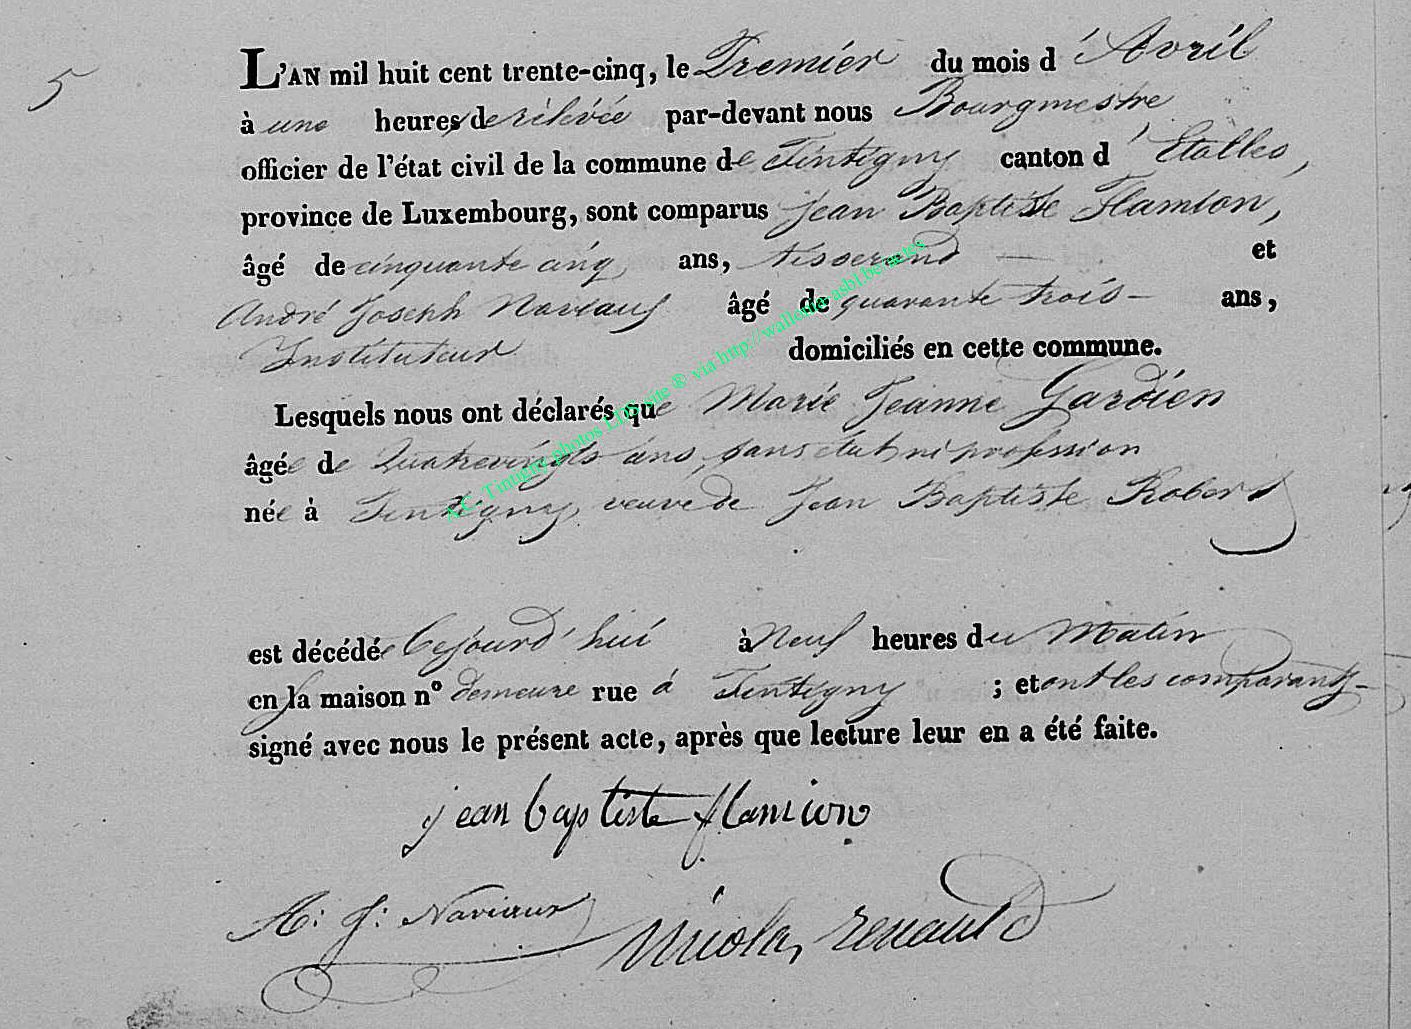 5
L'AN mil huit cent trente-cinq, le Premier du mois d'Avril
à une heures de rélévée par-devant nous Bourgmestre
officier de l'état civil de la commune de Tintigny canton d'Etalles,
province de Luxembourg, sont comparus Jean Baptiste Flamion,
âgé de cinquante cinq ans, tisserand — et
André Joseph Naviaux âgé de quarante trois - ans,
Instituteur domiciliés en cette commune.
Lesquels nous ont déclarés que Marie Jeanne Gardien
âgée de Quatrevingts ans, sans état ni profession
née à Tintigny, veuve de Jean Baptiste Robert
est décédée Cejourd'hui à Neuf heures du Matin
en sa maison n° demeure rue à Tintigny ; et ont les comparants
signé avec nous le présent acte, après que lecture leur en a été faite.
jean baptiste flamion
A: J: Naviaux
Nicolas renauld
A.C. Tintigny photos LDS site ® via http://wallonia-asbl.be/actes